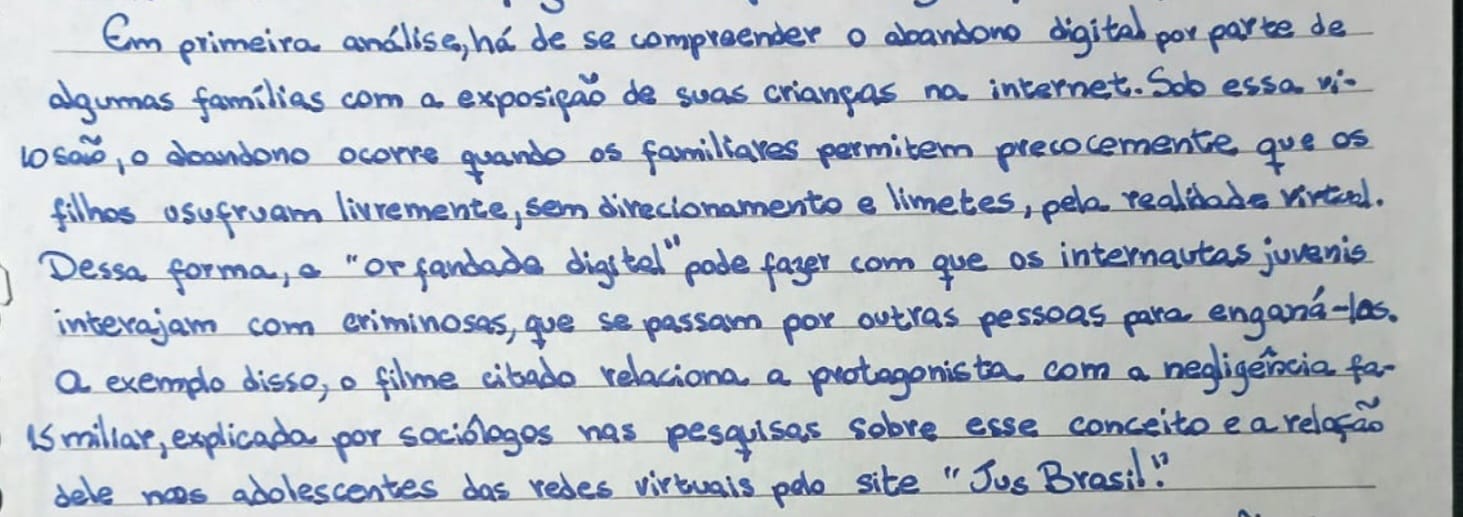 Em primeira análise, há de se compreender o abandono digital por parte de
algumas famílias com a exposição de suas crianças na internet. Sob essa vi-
10 são, o abandono ocorre quando os familiares permitem precocemente que os
filhos usufruam livremente, sem direcionamento e limetes, pela realidade virtual.
Dessa forma, a "orfandade digital" pode fazer com que os internautas juvenis
interajam com criminosos, que se passam por outras pessoas para enganá-los.
A exemplo disso, o filme citado relaciona a protagonista com a negligência fa-
15 miliar, explicada por sociólogos nas pesquisas sobre esse conceito e a relação
dele nos adolescentes das redes virtuais pelo site "Jus Brasil".